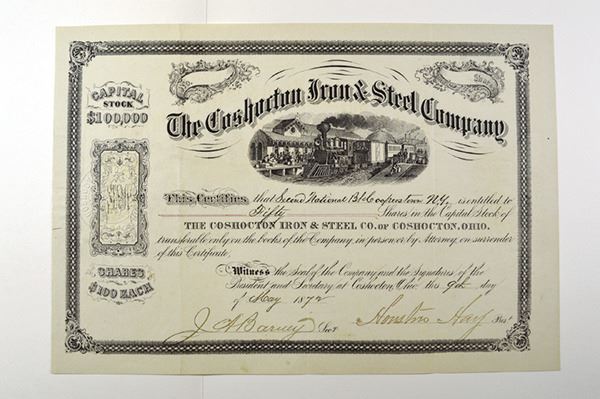 Shares
The Coshocton Iron & Steel Company
CAPITAL
STOCK
$100,000
SHARES
$100 EACH
This Certifies that Second National Bk Cooperstown N.Y. is entitled to
Fifty Shares in the Capital Stock of
THE COSHOCTON IRON & STEEL CO. OF COSHOCTON, OHIO.
transferable only on the books of the Company, in person or by Attorney, on surrender
of this Certificate.
Witness the Seal of the Company and the Signatures of the
President and Secretary at Coshocton, Ohio. this 9th day
of May 1872
J A Barney Secy Houston Hay Prest